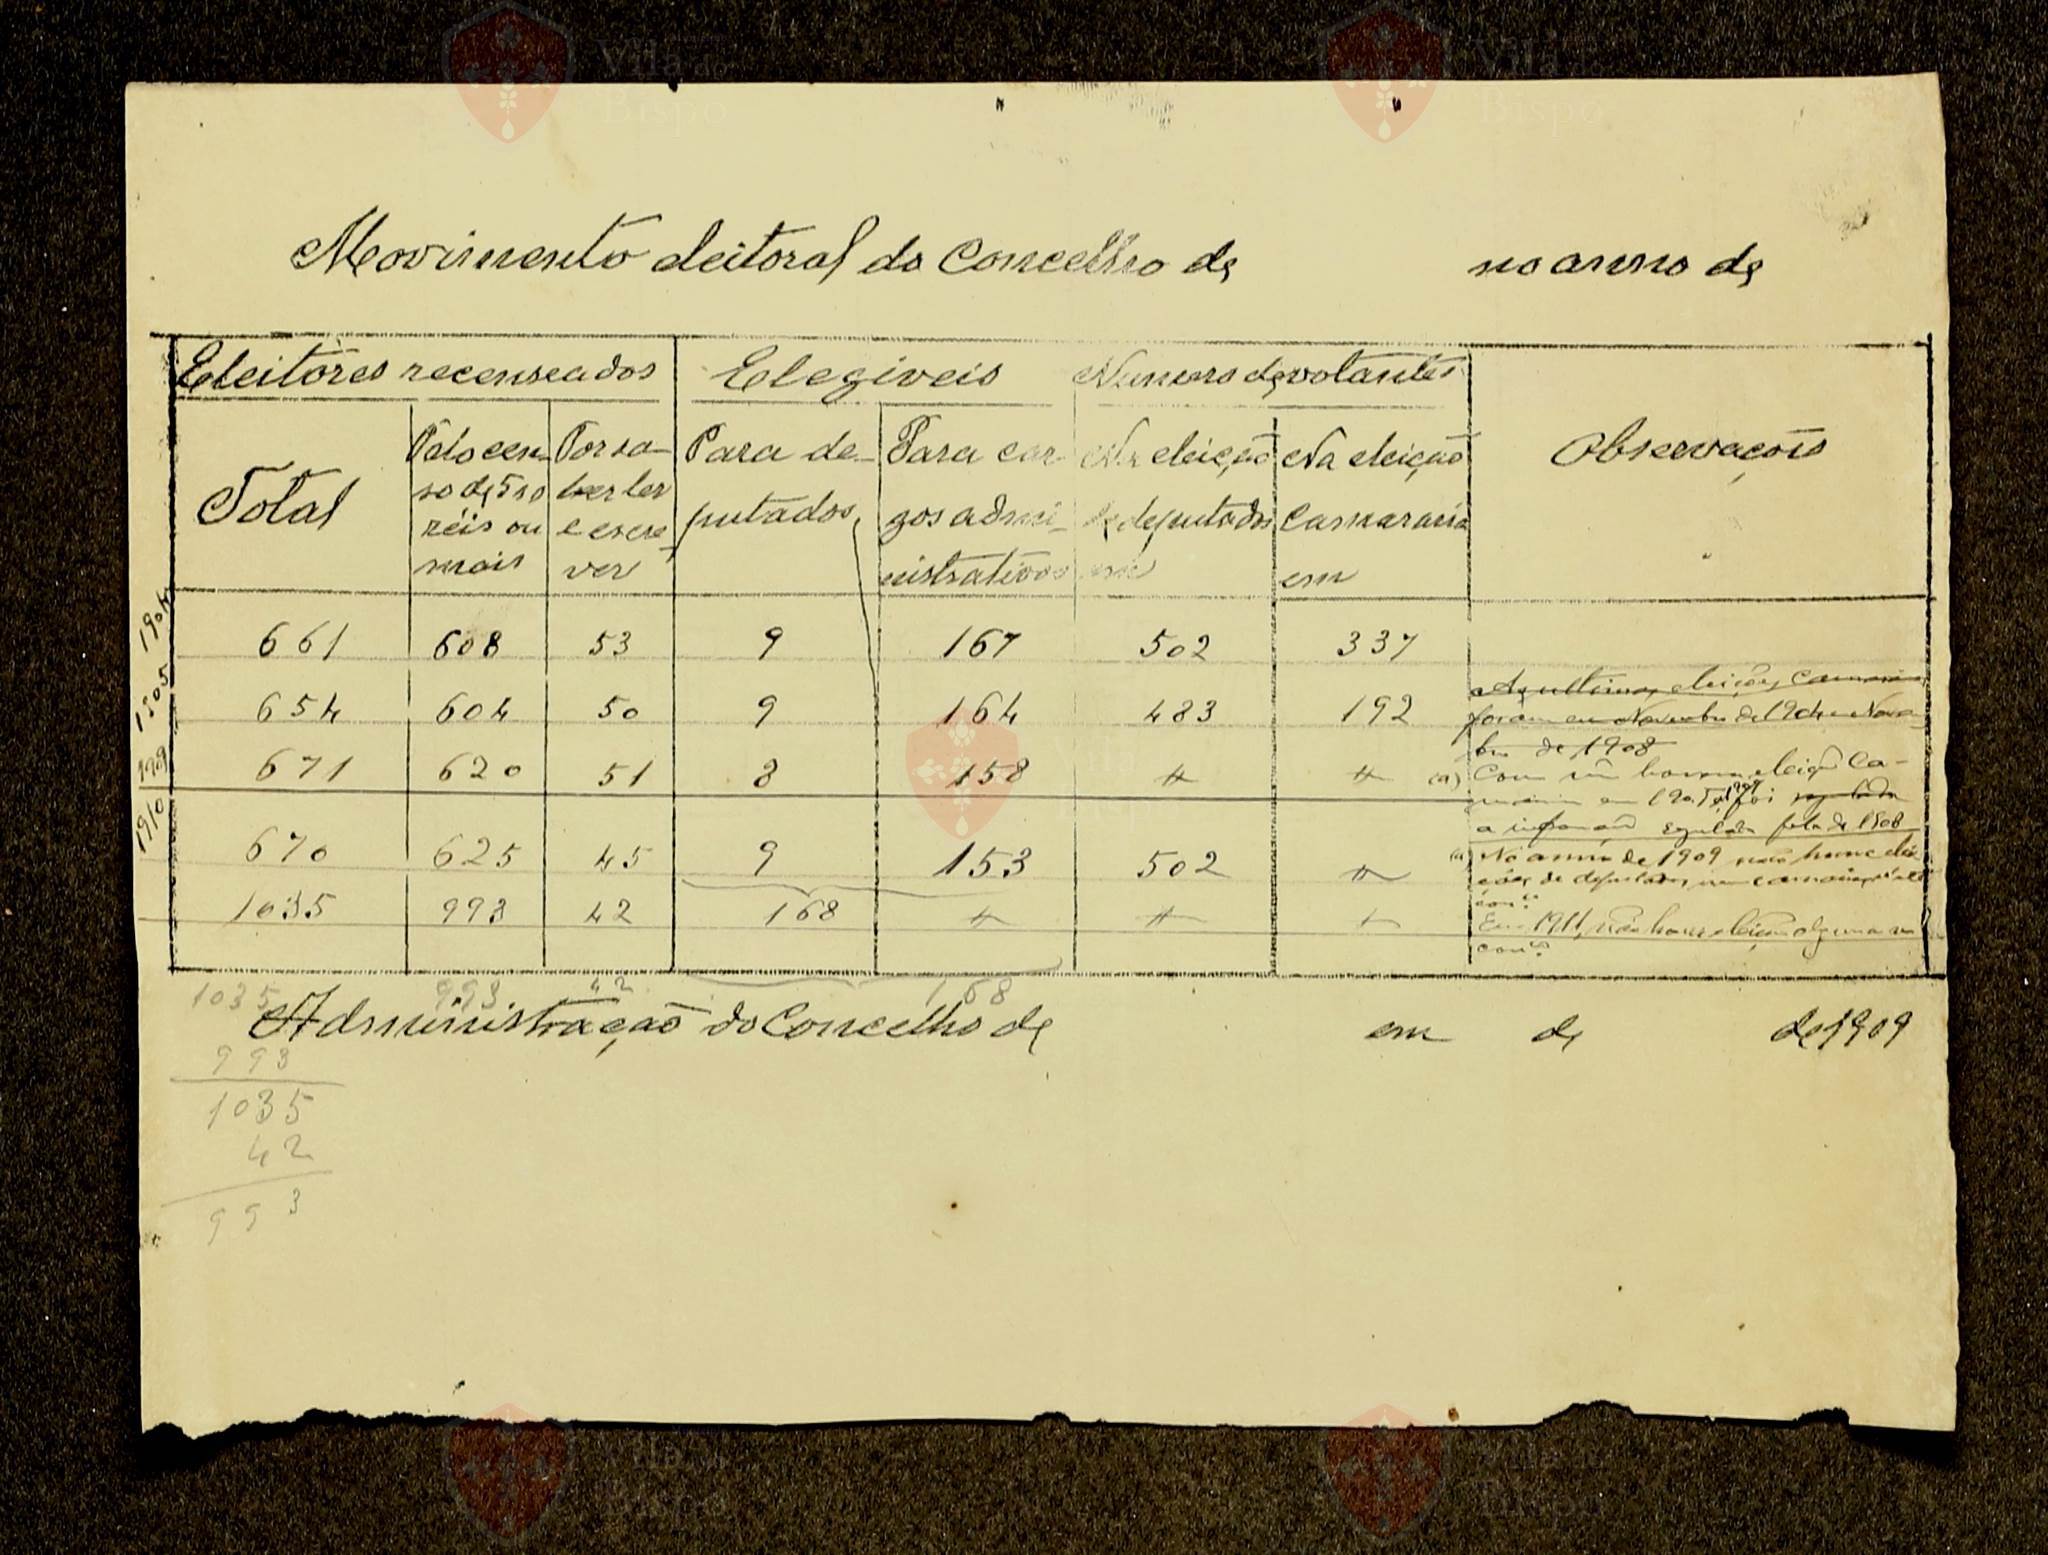 Movimento eleitoral do Concelho de no anno de
Eleitores recenseados Elegiveis Numero de votantes Observações
Total
Pelo cen-
so de 500
réis ou
mais
Por sa-
ber ler
e escre-
ver
Para de-
putados
Para car-
gos admi-
nistrativos
Na eleição
de deputados
em
Na eleição
Camararia
em
1904 661 608 53 9 167 502 337
1905 654 604 50 9 164 483 192
As ultimas eleições
foram em Novembro de 1904 e Novem-
bro de 1908
1909 671 620 51 8 158 " "
(a) Como não houve eleição Ca-
em foi
a informação pela de 1908
1910 670 625 45 9 153 502 "
(a) No anno de 1909 não houve elei-
ções de deputados, nem
con.º
1035 993 42 168 " " "
Em 1911, não houve eleição alguma no
con.º
1035 993 42 168
Administração do Concelho de em de de 1909
993
1035
42
993
Vila do
Bispo
Vila do
Bispo
Vila do
Bispo
Vila do
Bispo